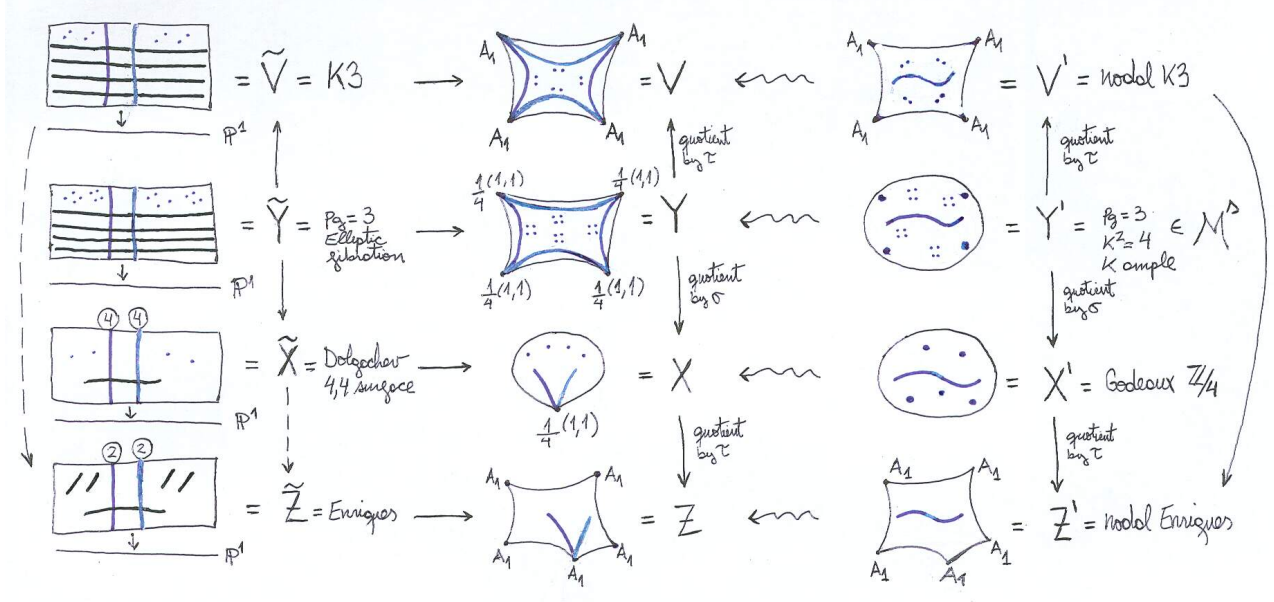 = Ṽ = K3
ℙ¹
A₁ A₁ A₁ A₁
= V
A₁ A₁ A₁ A₁
= V' = nodal K3
quotient by τ
quotient by τ
= Ỹ = Pg = 3
Elliptic
fibration
ℙ¹
1/4(1,1) 1/4(1,1)
1/4(1,1) 1/4(1,1)
= Y
= Y' = Pg = 3
K² = 4 ∈ Mˢ
K ample
quotient by σ
quotient by σ
④ ④
= X̃ = Dolgachev
4,4 surface
ℙ¹
1/4(1,1)
= X
= X' = Godeaux ℤ/4
quotient by τ
quotient by τ
② ②
= Z̃ = Enriques
ℙ¹
A₁ A₁ A₁ A₁ A₁
= Z
A₁ A₁ A₁ A₁ A₁
= Z' = nodal Enriques